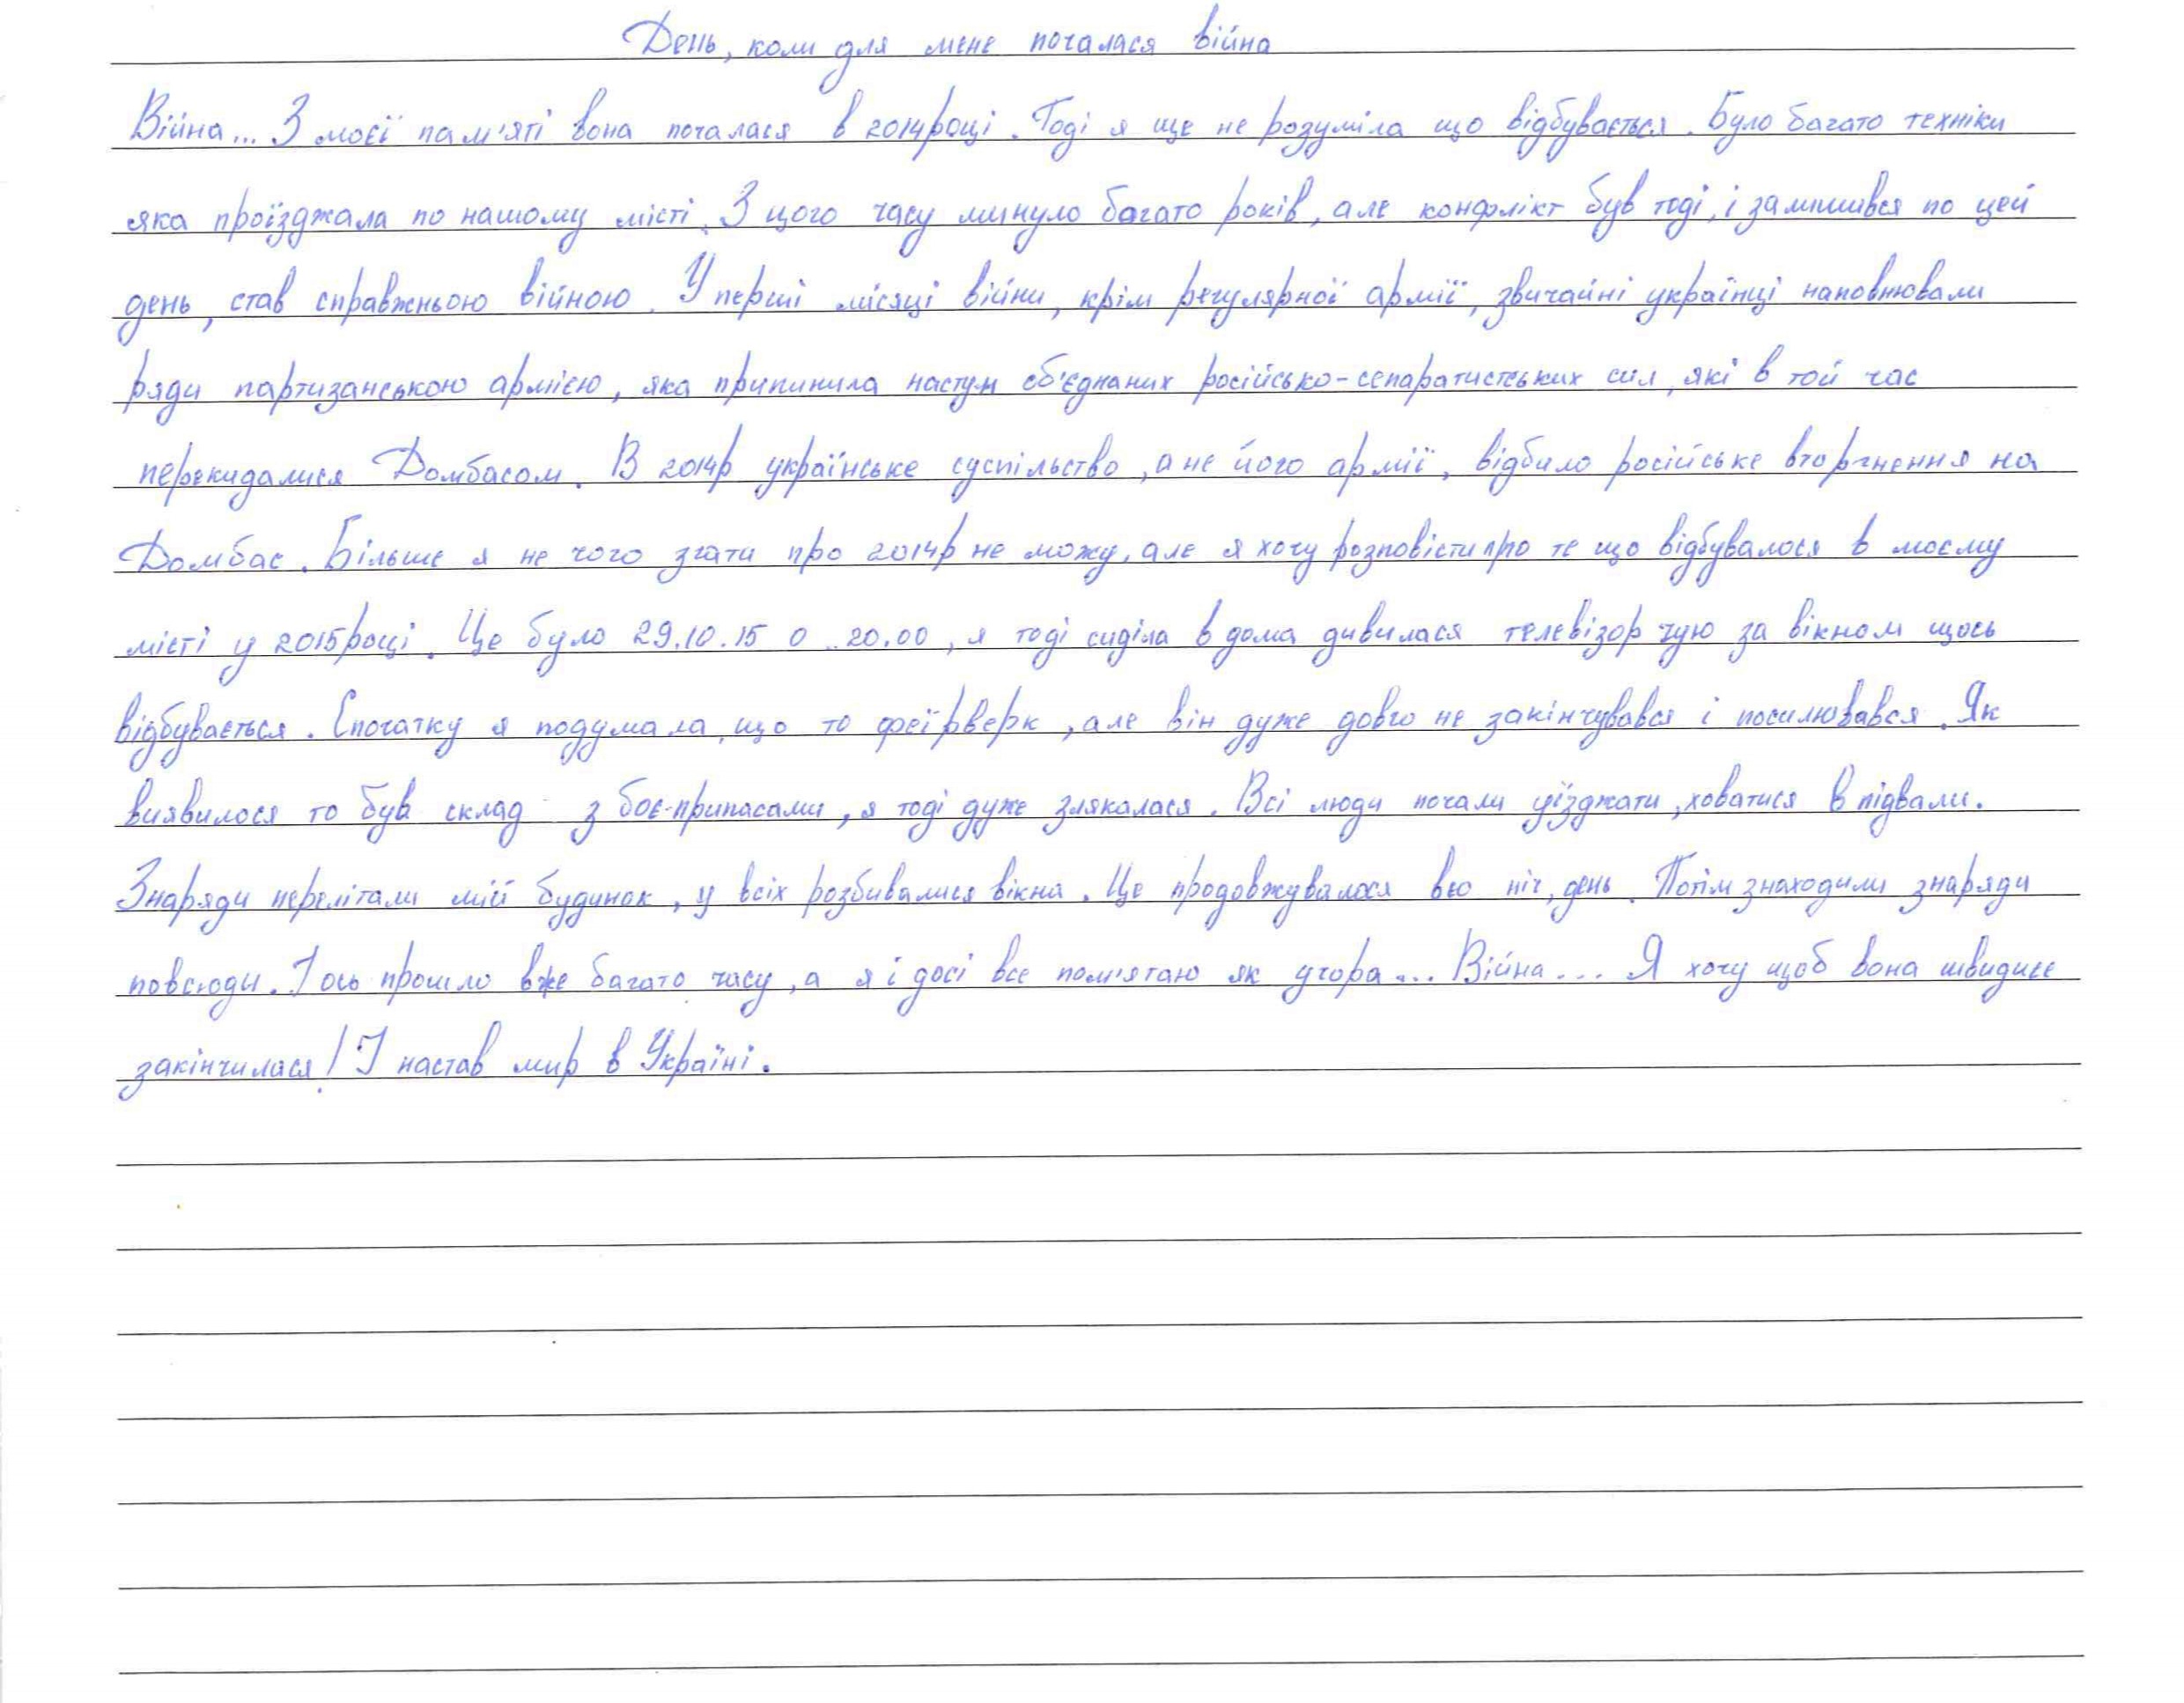 День, коли для мене почалася війна
Війна... З моєї пам'яті вона почалася в 2014році. Тоді я ще не розуміла що відбувається. Було багато техніки
яка проїзджала по нашому місті. З цого часу минуло багато років, але конфлікт був тоді, і залишився по цей
день, став справжньою війною. У перші місяці війни, крім регулярної армії, звичайні українці наповнювали
ряди партизанською армією, яка припинила наступ об'єднаних російсько-сепаратистських сил, які в той час
перекидалися Домбасом. В 2014р українське суспільство, а не його армії, відбило російське вторгнення на
Домбас. Більше я не чого згати про 2014р не можу, але я хочу розповісти про те що відбувалося в моєму
місті у 2015році. Це було 29.10.15 о 20.00, я тоді сиділа в дома дивилася телевізор чую за вікном щось
відбувається. Спочатку я подумала, що то феїрверк, але він дуже довго не закінчувався і посилювався. Як
виявилося то був склад з боє-припасами, я тоді дуже злякалася. Всі люди почали уїзджати, ховатися в підвали.
Знаряди перелітали мій будинок, у всіх розбивалися вікна. Це продовжувалося всю ніч, день. Потім знаходили знаряди
повсюди. І ось прошло вже багато часу, а я і досі все пом'ятаю як учора... Війна... Я хочу щоб вона швидше
закінчилася! І настав мир в Україні.